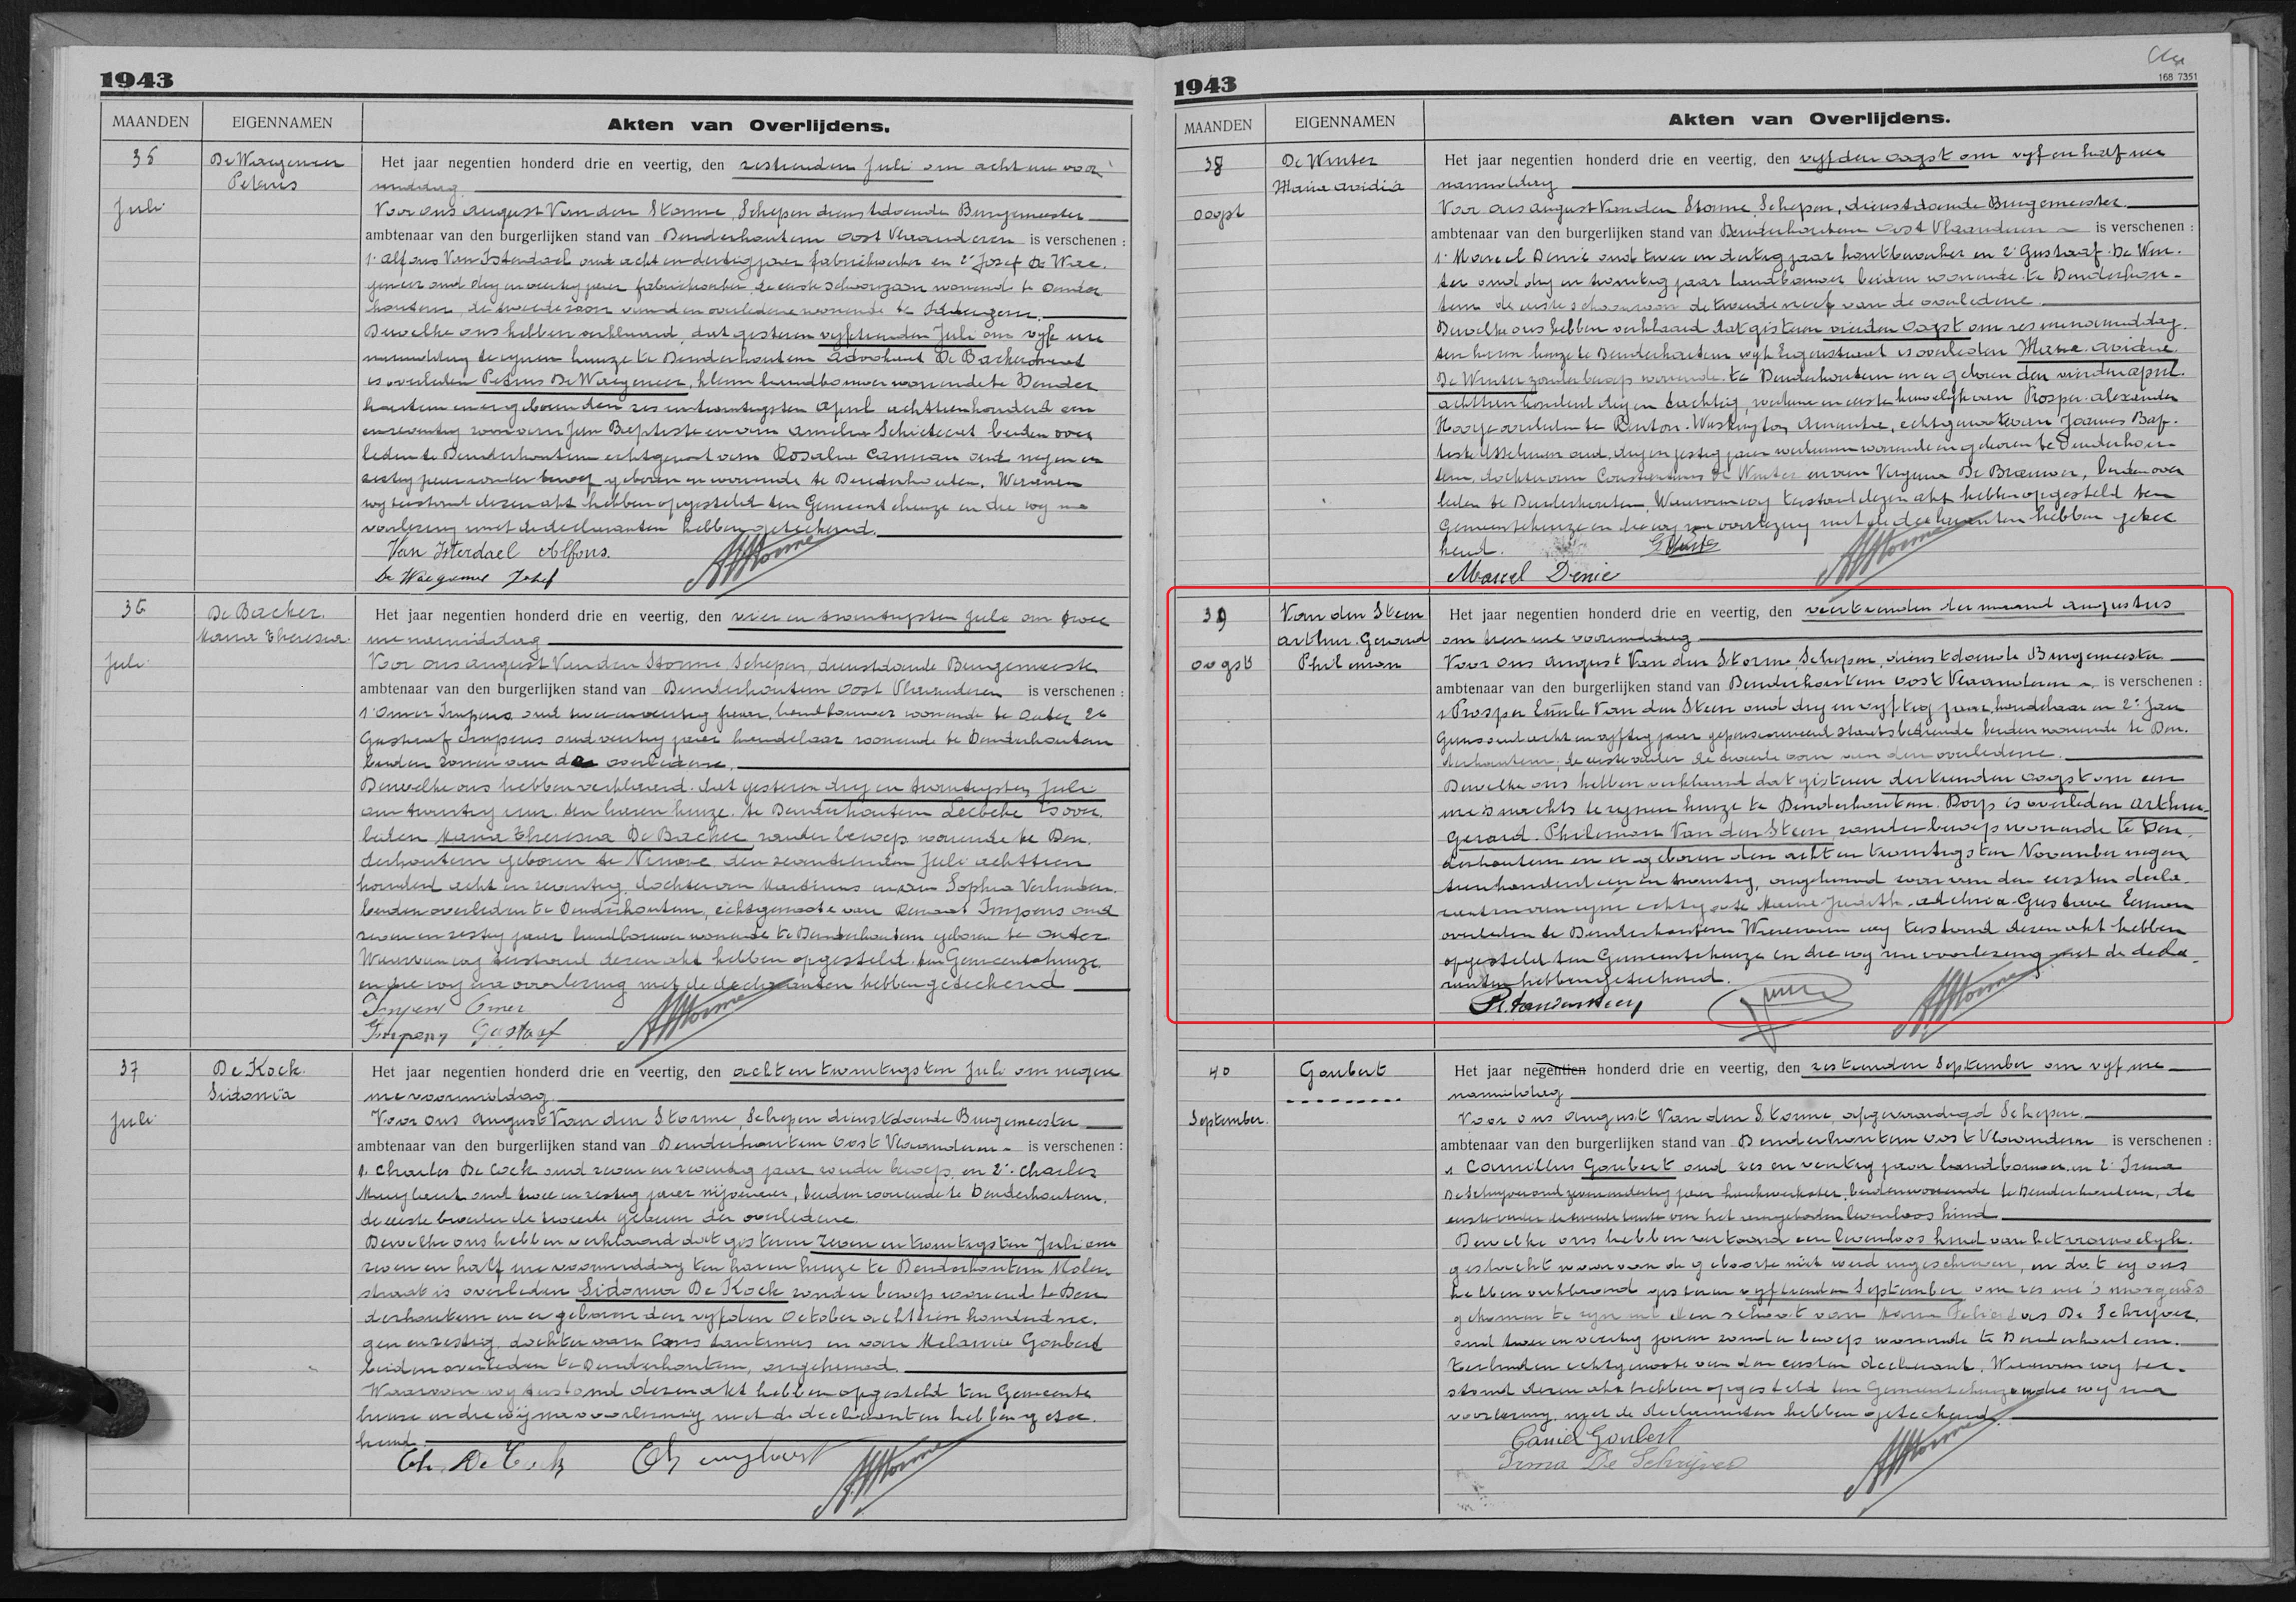 1943
MAANDEN EIGENNAMEN Akten van Overlijdens.
35 De Waegeneer Petrus
Juli
Het jaar negentien honderd drie en veertig, den zestienden Juli om acht ure voor
middag
Voor ons August Van den Storme, Schepen dienstdoende Burgemeester
ambtenaar van den burgerlijken stand van Denderhoutem Oost Vlaanderen is verschenen :
1. Alfons Van Isterdael oud acht en dertig jaar fabriekwerker en 2° Josef De Wae
geneer oud drij en veertig jaar fabriekwerker, de eerste schoonzoon wonende te Dender
houtem de tweede zoon van den overledene wonende te
Dewelke ons hebben verklaard, dat gisteren vyftienden Juli om vyf ure
namiddag te zynen huize te Denderhoutem Advokaat De Backerstraat
is overleden Petrus De Waegeneer, kleine landbouwer wonende te Dender
houtem en er geboren den zes en twintigsten April achttienhonderd een
en zeventig zoon van Jan Baptiste en van Amelia Schietecat beiden over
leden te Denderhoutem echtgenoot van Rosalie Cannan oud negen en
zestig jaar zonder beroep geboren en wonende te Denderhoutem. Waarvan
wy terstond dezen akt hebben opgesteld ten Gemeentehuize en die wy na
voorlezing met de declaranten hebben geteekend.
Van Isterdael Alfons.
De Waegeneer Josef
36 De Backer Maria Theresia
Juli
Het jaar negentien honderd drie en veertig, den vier en twintigsten Juli om twee
ure namiddag
Voor ons August Van den Storme, Schepen, dienstdoende Burgemeester
ambtenaar van den burgerlijken stand van Denderhoutem Oost Vlaanderen is verschenen :
1° Omer Impens oud twee en veertig jaar, landbouwer wonende te Outer 2e
Gustaaf Impens oud veertig jaar handelaar wonende te Denderhoutem
beiden zonen van de overledene.
Dewelke ons hebben verklaard dat gisteren drij en twintigsten Juli
om twintig uur ten haren huize te Denderhoutem Leebeke is over
leden Maria Theresia De Backer zonder beroep wonende te Den
derhoutem geboren te Ninove den zeventienden Juli achttien
honderd acht en zeventig, dochter van Martinus en van Sophia Verlinden
beiden overleden te Denderhoutem, echtgenoote van Renaat Impens oud
zeven en zestig jaar landbouwer wonende te Denderhoutem geboren te Outer
Waarvan wy terstond dezen akt hebben opgesteld ten Gemeentehuize
en die wy na voorlezing met de declaranten hebben geteekend
Impens Omer
Impens Gustaaf
37 De Kock Sidonia
Juli
Het jaar negentien honderd drie en veertig, den acht en twintigsten Juli om negen
ure voormiddag
Voor ons August Van den Storme, Schepen dienstdoende Burgemeester
ambtenaar van den burgerlijken stand van Denderhoutem Oost Vlaanderen is verschenen :
1. Charles De Cock oud zeven en zeventig jaar zonder beroep en 2°. Charles
oud twee en zestig jaar nijveraar, beiden wonende te Denderhoutem,
de eerste broeder de tweede gebuur der overledene.
Dewelke ons hebben verklaard dat gisteren zeven en twintigsten Juli om
zeven en half ure voormiddag ten haren huize te Denderhoutem Molen
straat is overleden Sidonia De Kock zonder beroep wonende te Den
derhoutem en er geboren den vyfden October achttien honderd ne
gen en zestig, dochter van Constantinus en van Melanie Goubert
beiden overleden te Denderhoutem, ongehuwd.
Waarvan wy terstond dezen akt hebben opgesteld ten Gemeente
huize en die wij na voorlezing met de declaranten hebben getee
kend
Ch. De Cock
1943
168 7351
MAANDEN EIGENNAMEN Akten van Overlijdens.
38 De Winter Maria Avidia
Oogst
Het jaar negentien honderd drie en veertig, den vyfden Oogst om vyf en half ure
namiddag
Voor ons August Van den Storme, Schepen, dienstdoende Burgemeester
ambtenaar van den burgerlijken stand van Denderhoutem Oost Vlaanderen is verschenen :
1. Marcel Denie oud twee en dertig jaar houtbewerker en 2° Gustaaf De Win
ter oud drij en twintig jaar landbouwer beiden wonende te Denderhou
tem de eerste schoonzoon de tweede neef van de overledene.
Dewelke ons hebben verklaard dat gisteren vierden Oogst om zes ure namiddag
ten haren huize te Denderhoutem wyk is overleden Maria Avidia
De Winter zonder beroep wonende te Denderhoutem en er geboren den vierden April
achttien honderd drij en tachtig, weduwe in eerste huwelijk van Prosper Alexander
overleden te Renton Washington Amerika, echtgenoote van Joannes Bap
tiste oud drij en zestig jaar wonende en geboren te Denderhou
tem, dochter van Constantinus De Winter en van Virginia De Brauwer, beiden over
leden te Denderhoutem, Waarvan wy terstond dezen akt hebben opgesteld ten
Gemeentehuize en die wy na voorlezing met de declaranten hebben getee
kend.
Marcel Denie
39 Van den Steen Arthur Gerard Philemon
Oogst
Het jaar negentien honderd drie en veertig, den veertienden der maand Augustus
om tien ure voormiddag
Voor ons August Van den Storme, Schepen, dienstdoende Burgemeester
ambtenaar van den burgerlijken stand van Denderhoutem Oost Vlaanderen, is verschenen :
1 Prosper Emile Van den Steen oud drij en vyftig jaar, handelaar en 2° Jan
oud acht en vyftig jaar gepensioneerd staatsbediende beiden wonende te Den
derhoutem, de eerste vader de tweede oom van den overledene.
Dewelke ons hebben verklaard dat gisteren dertienden Oogst om een
ure 's nachts te zynen huize te Denderhoutem Dorp is overleden Arthur
Gerard Philemon Van den Steen, zonder beroep wonende te Den
derhoutem en er geboren den acht en twintigsten November negen
tienhonderd een en twintig, ongehuwd zoon van den eersten decla
rant en van zyne echtgenote Marie Judith Adelina Gustave Eeman
overleden te Denderhoutem Waarvan wy terstond dezen akt hebben
opgesteld ten Gemeentehuize en die wy na voorlezing met de decla
ranten hebben geteekend.
P. Vandensteen
40 Goubert
September
Het jaar negentien honderd drie en veertig, den zestienden September om vyf ure
namiddag
Voor ons August Van den Storme, afgevaardigd Schepen
ambtenaar van den burgerlijken stand van Denderhoutem Oost Vlaanderen is verschenen :
1 Camillus Goubert oud zes en veertig jaar landbouwer en 2° Irma
De Schrijver oud zeven en dertig jaar, beiden wonende te Denderhoutem, de
eerste vader de tweede tante van het aangeboden levenloos kind
Dewelke ons hebben vertoond een levenloos kind van het vrouwelyk
geslacht waarvan de geboorte niet werd ingeschreven, en dat zy ons
hebben verklaard gisteren vyftienden September om zes ure 's morgends
gekomen te zyn uit den schoot van Maria De Schrijver,
oud twee en veertig jaren zonder beroep wonende te Denderhoutem
Terlinden echtgenoote van den eersten declarant. Waarvan wy ter
stond dezen akt hebben opgesteld ten Gemeentehuize en die wy na
voorlezing met de declaranten hebben geteekend
Camiel Goubert
Irma De Schrijver